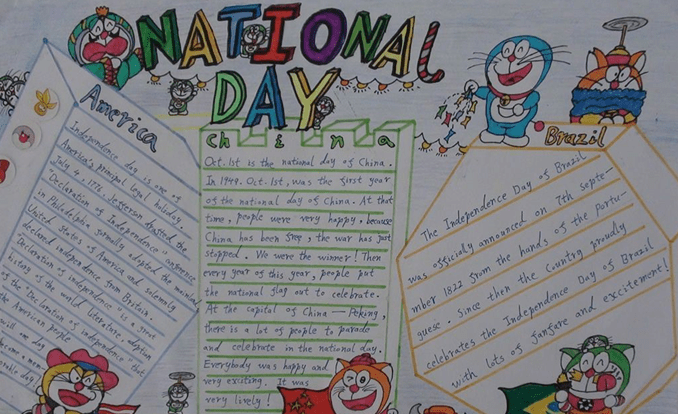 NATIONAL
DAY
America
Independence day is one of
America's principal legal holiday.
July 4, 1776, Jefferson drafted the
"Declaration of Independence" conference
in Philadelphia formally adopted the
United States of America and solemnly
declared independence from Britain.
Declaration of independence "is a
history of the world literature, adoption
of the Declaration of independence" that
the American people
will one day
china
Oct. 1st is the national day of China.
In 1949. Oct. 1st, was the first year
of the national day of China. At that
time, people were very happy, because
China has been free, the war has just
stopped. We were the winner! Then
every year of this year, people put
the national flag out to celebrate.
At the capital of China — Peking,
there is a lot of people to parade
and celebrate in the national day.
Everybody was happy and
very exciting. It was
very lively!
Brazil
The Independence Day of Brazil
was officialy announced on 7th septe-
mber 1822 from the hands of the Portu-
guese. since then the Country proudly
celebrates the Independence Day of Brazil
with lots of fanfare and excitement!